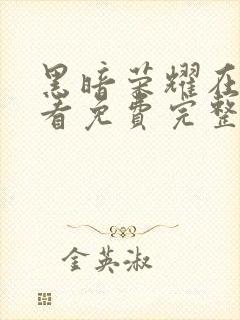 黑暗荣耀在
看免费完整
金英淑